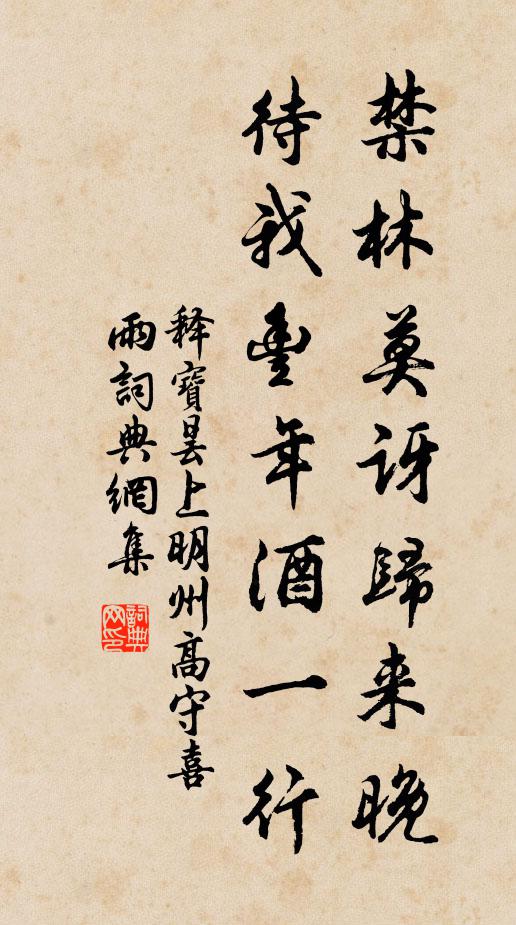 禁林莫訝歸来晚
待我豊年酒一行
释寶昙上明州高守喜
雨詞典網集
詞典网印